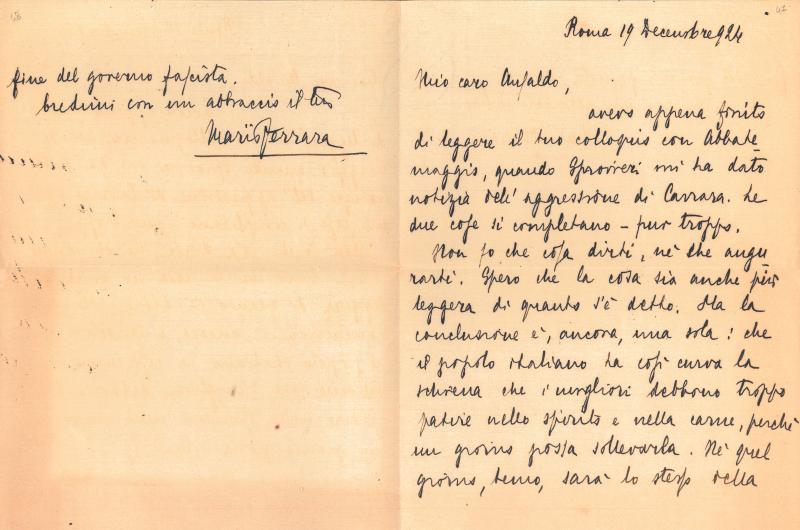 Roma 19 Decembre 924
Mio caro Ansaldo,
avevo appena finito
di leggere il tuo colloquio con Abbate
maggio, quando Sprovieri mi ha dato
notizia dell'aggressione di Carrara. Le
due cose si completano - pur troppo.
Non so che cosa dirti, nè che augu
rarti. Spero che la cosa sia anche più
leggera di quanto s'è detto. Ma la
conclusione è, ancora, una sola: che
il popolo italiano ha così curva la
schiena che i migliori debbono troppo
patire nello spirito e nella carne, perchè
un giorno possa sollevarla. Nè quel
giorno, temo, sarà lo stesso della
fine del governo fascista.
Credimi con un abbraccio il tuo
Mario Ferrara